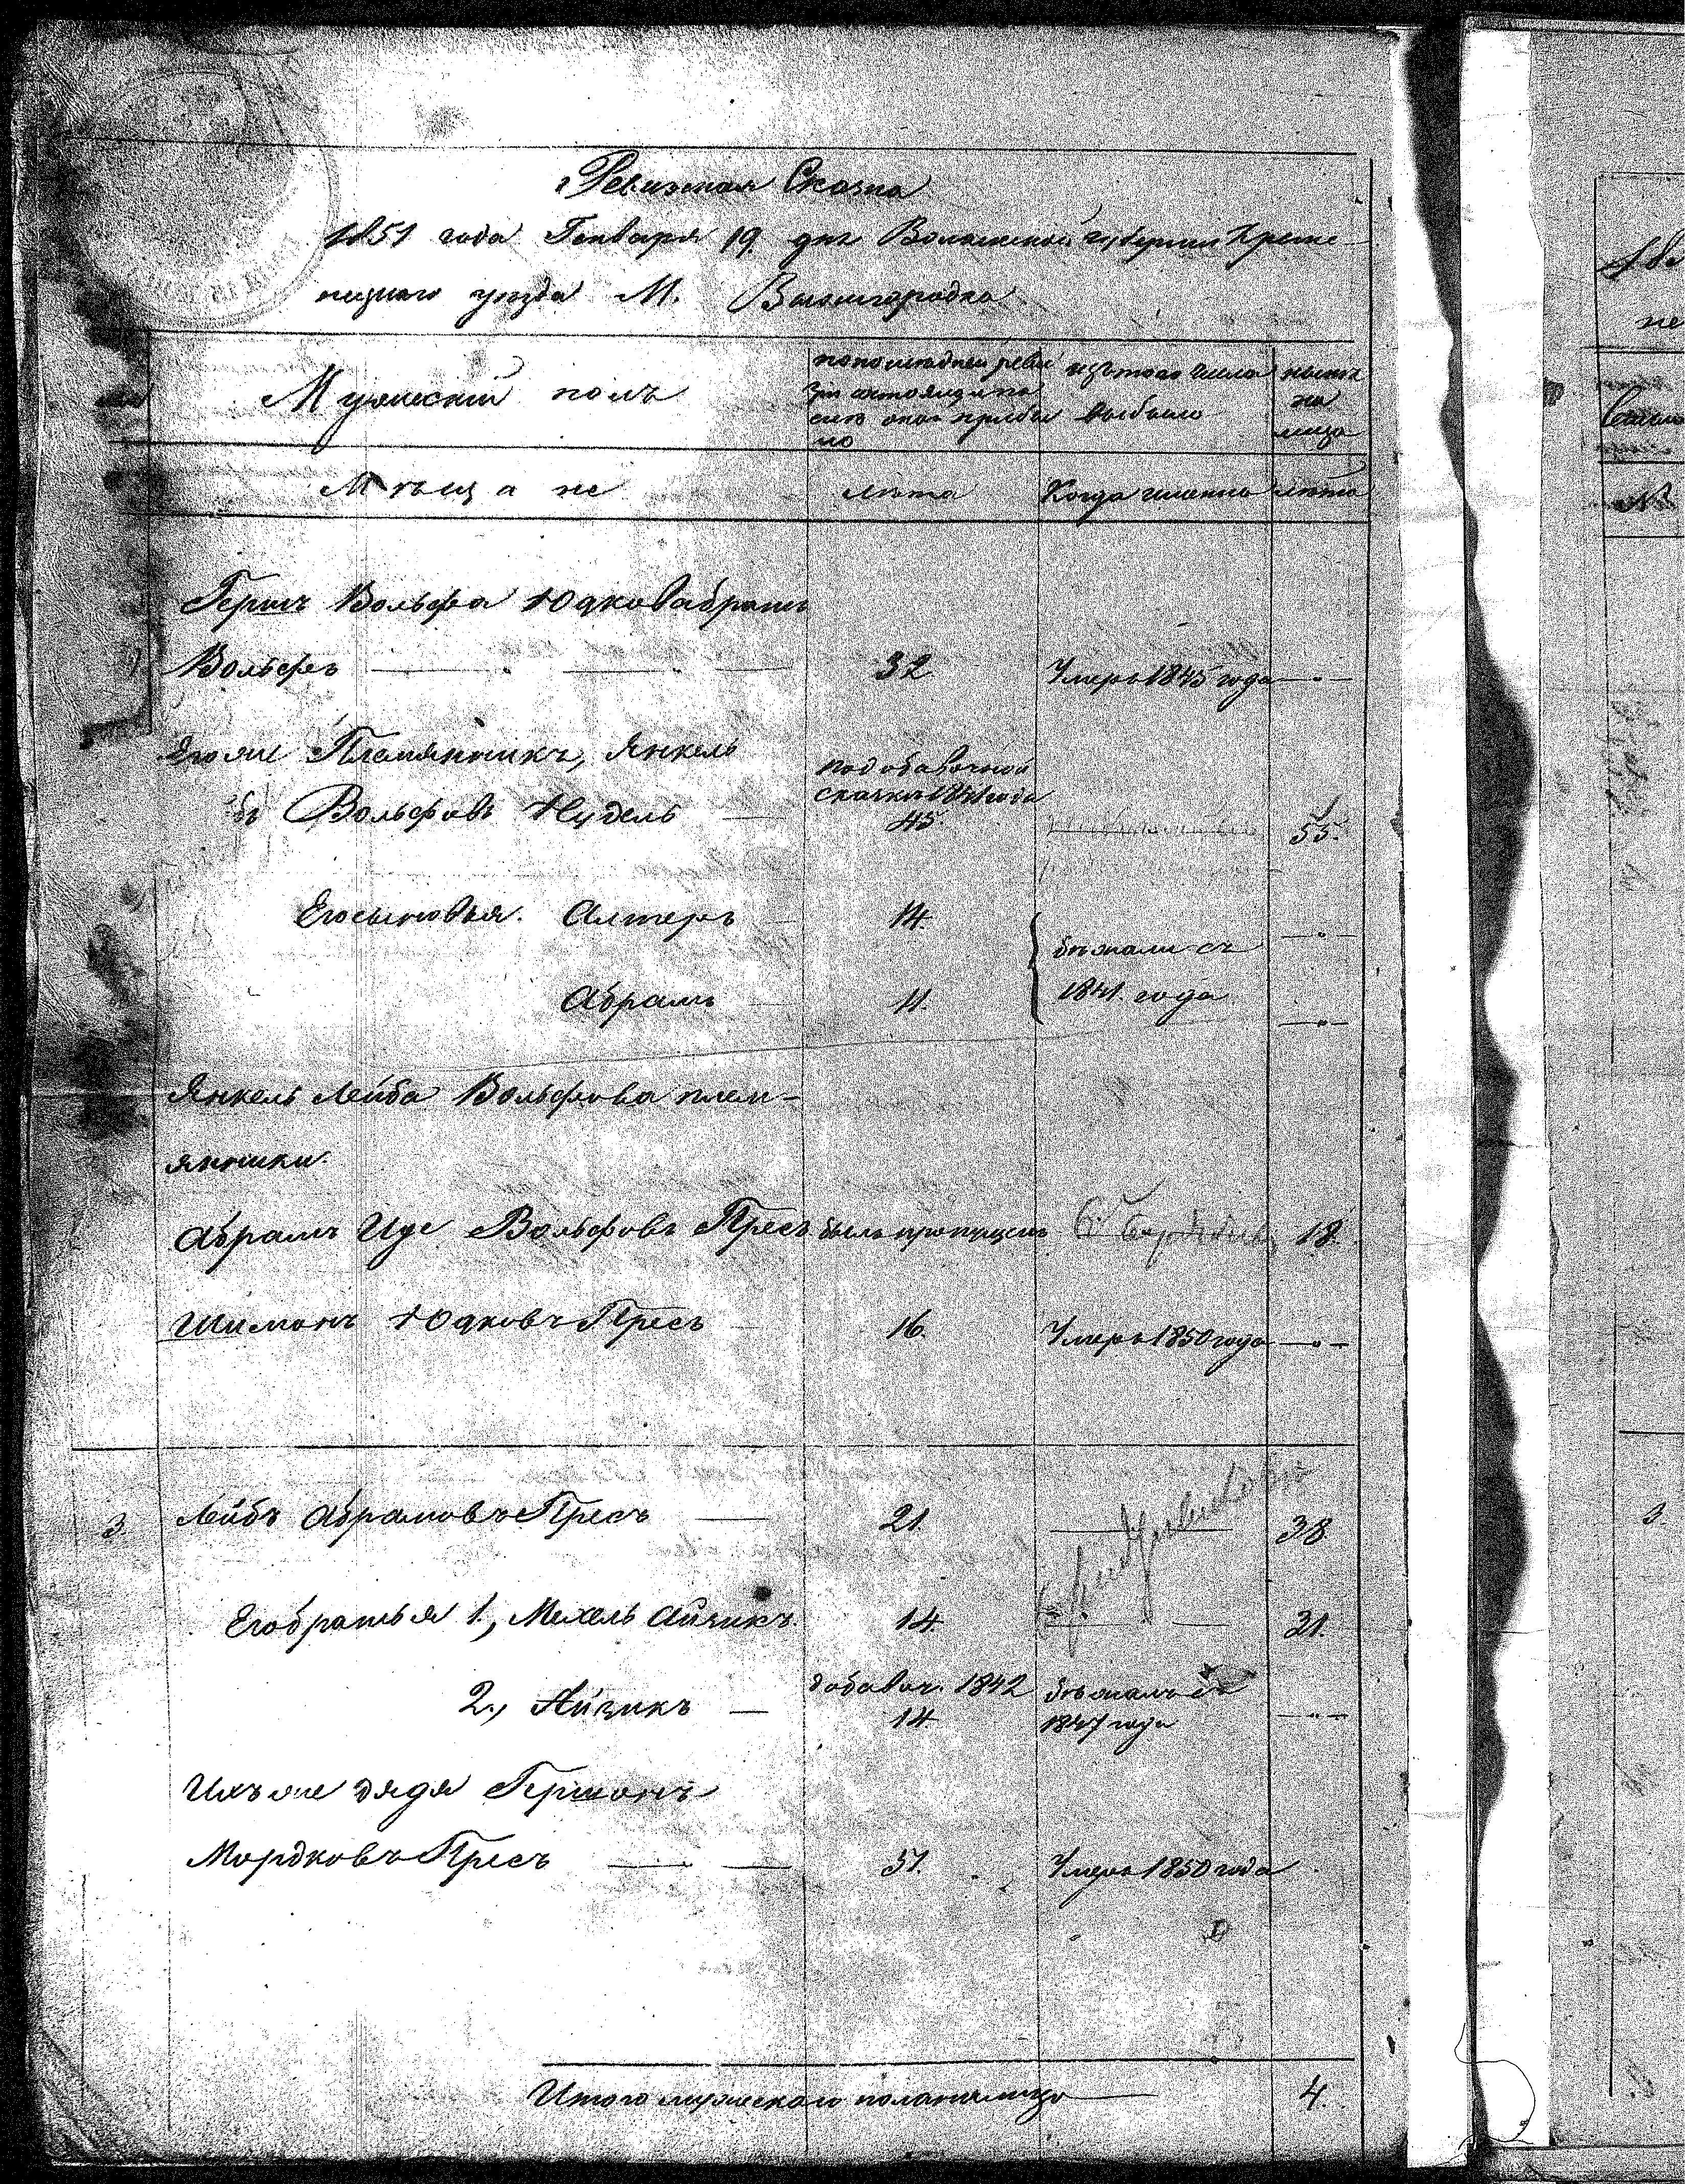 Ревизская Сказка
1851 года Генваря 19 дня Волынской губернии Креме-
нецкаго уезда М. Вышгородка
Мужеский полъ
по последней реви
зіи состояло и по
сле оной прибы
ло
изъ того числа
выбыло
ныне
на
лицо
Мѣщане
лѣта
Когда именно
лѣта
Герш Вольфа Юдкова братъ
Вольфъ 32 Умеръ 1845 года
Его же Племянникъ, Янкель
по добавочной
сказке 1841 года
Вольфовъ Нудель 45. 55.
Его сыновья. Алтеръ 14.
бѣжали съ
1841. года
Абрамъ 11.
Янкель Лейба Вольфова плем-
янники.
Абрамъ Иде Вольфовъ Пресъ былъ пропущенъ 18.
Шимонъ Юдковъ Пресъ 16. Умеръ 1850 года
3. Лейбъ Абрамовъ Пресъ 21. 38
Его братья 1., Мехель Айзикъ. 14. 31.
добавоч. 1842 бѣжалъ съ
2., Айзикъ 14. 1847 года
Ихъ же дядя Гершонъ
Мордковъ Пресъ 51. Умеръ 1850 года
Итого мужескаго пола на лицо 4.
3.